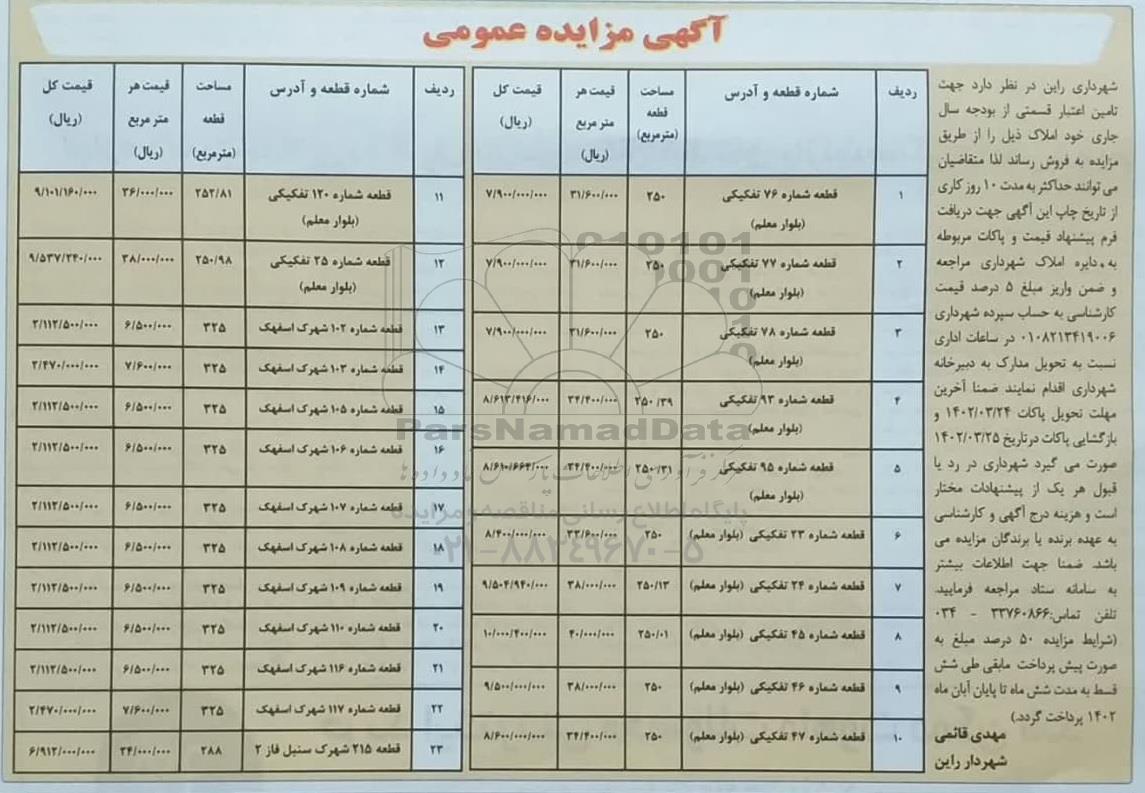 آگهی مزایده عمومی
شهرداری راین در نظر دارد جهت
تامین اعتبار قسمتی از بودجه سال
جاری خود املاک ذیل را از طریق
مزایده به فروش رساند لذا متقاضیان
می توانند حداکثر به مدت ۱۰ روز کاری
از تاریخ چاپ این آگهی جهت دریافت
فرم پیشنهاد قیمت و پاکات مربوطه
به دایره املاک شهرداری مراجعه
و ضمن واریز مبلغ ۵ درصد قیمت
کارشناسی به حساب سپرده شهرداری
۰۱۰۸۲۱۳۴۱۹۰۰۶ در ساعات اداری
نسبت به تحویل مدارک به دبیرخانه
شهرداری اقدام نمایند ضمنا آخرین
مهلت تحویل پاکات ۱۴۰۲/۰۳/۲۴ و
بازگشایی پاکات در تاریخ ۱۴۰۲/۰۳/۲۵
صورت می گیرد شهرداری در رد یا
قبول هر یک از پیشنهادات مختار
است و هزینه درج آگهی و کارشناسی
به عهده برنده یا برندگان مزایده می
باشد. ضمنا جهت اطلاعات بیشتر
به سامانه ستاد مراجعه فرمایید.
تلفن تماس:۳۳۷۶۰۸۶۶ - ۰۳۴
(شرایط مزایده ۵۰ درصد مبلغ به
صورت پیش پرداخت مابقی طی شش
قسط به مدت شش ماه تا پایان آبان ماه
۱۴۰۲ پرداخت گردد.)
مهدی قائمی
شهردار راین
ردیف شماره قطعه و آدرس مساحت قطعه (مترمربع) قیمت هر متر مربع (ریال) قیمت کل (ریال)
۱ قطعه شماره ۷۶ تفکیکی (بلوار معلم) ۲۵۰ ۳۱/۶۰۰/۰۰۰ ۷/۹۰۰/۰۰۰/۰۰۰
۲ قطعه شماره ۷۷ تفکیکی (بلوار معلم) ۲۵۰ ۳۱/۶۰۰/۰۰۰ ۷/۹۰۰/۰۰۰/۰۰۰
۳ قطعه شماره ۷۸ تفکیکی (بلوار معلم) ۲۵۰ ۳۱/۶۰۰/۰۰۰ ۷/۹۰۰/۰۰۰/۰۰۰
۴ قطعه شماره ۹۳ تفکیکی (بلوار معلم) ۲۵۰/۳۹ ۳۴/۴۰۰/۰۰۰ ۸/۶۱۳/۴۱۶/۰۰۰
۵ قطعه شماره ۹۵ تفکیکی (بلوار معلم) ۲۵۰/۳۱ ۳۴/۴۰۰/۰۰۰ ۸/۶۱۰/۶۶۴/۰۰۰
۶ قطعه شماره ۲۳ تفکیکی (بلوار معلم) ۲۵۰ ۳۳/۶۰۰/۰۰۰ ۸/۴۰۰/۰۰۰/۰۰۰
۷ قطعه شماره ۲۴ تفکیکی (بلوار معلم) ۲۵۰/۱۳ ۳۸/۰۰۰/۰۰۰ ۹/۵۰۴/۹۴۰/۰۰۰
۸ قطعه شماره ۴۵ تفکیکی (بلوار معلم) ۲۵۰/۰۱ ۴۰/۰۰۰/۰۰۰ ۱۰/۰۰۰/۴۰۰/۰۰۰
۹ قطعه شماره ۴۶ تفکیکی (بلوار معلم) ۲۵۰ ۳۸/۰۰۰/۰۰۰ ۹/۵۰۰/۰۰۰/۰۰۰
۱۰ قطعه شماره ۴۷ تفکیکی (بلوار معلم) ۲۵۰ ۳۴/۴۰۰/۰۰۰ ۸/۶۰۰/۰۰۰/۰۰۰
ردیف شماره قطعه و آدرس مساحت قطعه (مترمربع) قیمت هر متر مربع (ریال) قیمت کل (ریال)
۱۱ قطعه شماره ۱۲۰ تفکیکی (بلوار معلم) ۲۵۲/۸۱ ۳۶/۰۰۰/۰۰۰ ۹/۱۰۱/۱۶۰/۰۰۰
۱۲ قطعه شماره ۲۵ تفکیکی (بلوار معلم) ۲۵۰/۹۸ ۳۸/۰۰۰/۰۰۰ ۹/۵۳۷/۲۴۰/۰۰۰
۱۳ قطعه شماره ۱۰۲ شهرک اسفهک ۳۲۵ ۶/۵۰۰/۰۰۰ ۲/۱۱۲/۵۰۰/۰۰۰
۱۴ قطعه شماره ۱۰۳ شهرک اسفهک ۳۲۵ ۷/۶۰۰/۰۰۰ ۲/۴۷۰/۰۰۰/۰۰۰
۱۵ قطعه شماره ۱۰۵ شهرک اسفهک ۳۲۵ ۶/۵۰۰/۰۰۰ ۲/۱۱۲/۵۰۰/۰۰۰
۱۶ قطعه شماره ۱۰۶ شهرک اسفهک ۳۲۵ ۶/۵۰۰/۰۰۰ ۲/۱۱۲/۵۰۰/۰۰۰
۱۷ قطعه شماره ۱۰۷ شهرک اسفهک ۳۲۵ ۶/۵۰۰/۰۰۰ ۲/۱۱۲/۵۰۰/۰۰۰
۱۸ قطعه شماره ۱۰۸ شهرک اسفهک ۳۲۵ ۶/۵۰۰/۰۰۰ ۲/۱۱۲/۵۰۰/۰۰۰
۱۹ قطعه شماره ۱۰۹ شهرک اسفهک ۳۲۵ ۶/۵۰۰/۰۰۰ ۲/۱۱۲/۵۰۰/۰۰۰
۲۰ قطعه شماره ۱۱۰ شهرک اسفهک ۳۲۵ ۶/۵۰۰/۰۰۰ ۲/۱۱۲/۵۰۰/۰۰۰
۲۱ قطعه شماره ۱۱۶ شهرک اسفهک ۳۲۵ ۶/۵۰۰/۰۰۰ ۲/۱۱۲/۵۰۰/۰۰۰
۲۲ قطعه شماره ۱۱۷ شهرک اسفهک ۳۲۵ ۷/۶۰۰/۰۰۰ ۲/۴۷۰/۰۰۰/۰۰۰
۲۳ قطعه ۲۱۵ شهرک سنبل فاز ۲ ۲۸۸ ۲۴/۰۰۰/۰۰۰ ۶/۹۱۲/۰۰۰/۰۰۰
ParsNamadData
مرکز فرآوری اطلاعات پارس نماد داده ها
پایگاه اطلاع رسانی مناقصه و مزایده
۰۲۱-۸۸۳۴۹۶۷۰-۵